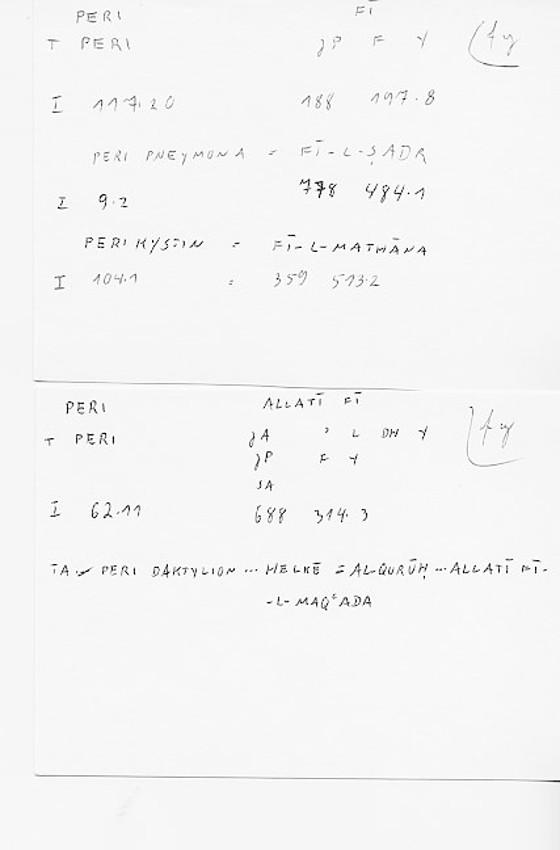 PERI FĪ
T PERI JP F Y fy
I 117.20 188 197.8
PERI PNEYMONA = FĪ-L-ṢADR
I 9.2 778 484.1
PERI KYSTIN = FĪ-L-MATHĀNA
I 104.1 = 359 513.2
PERI ALLATĪ FĪ
T PERI JA ' L DH Y fy
JP F Y
SA
I 62.11 688 314.3
TA PERI DAKTYLION ... HELKĒ = AL-QURŪḤ ... ALLATĪ FĪ-
-L-MAQʿADA